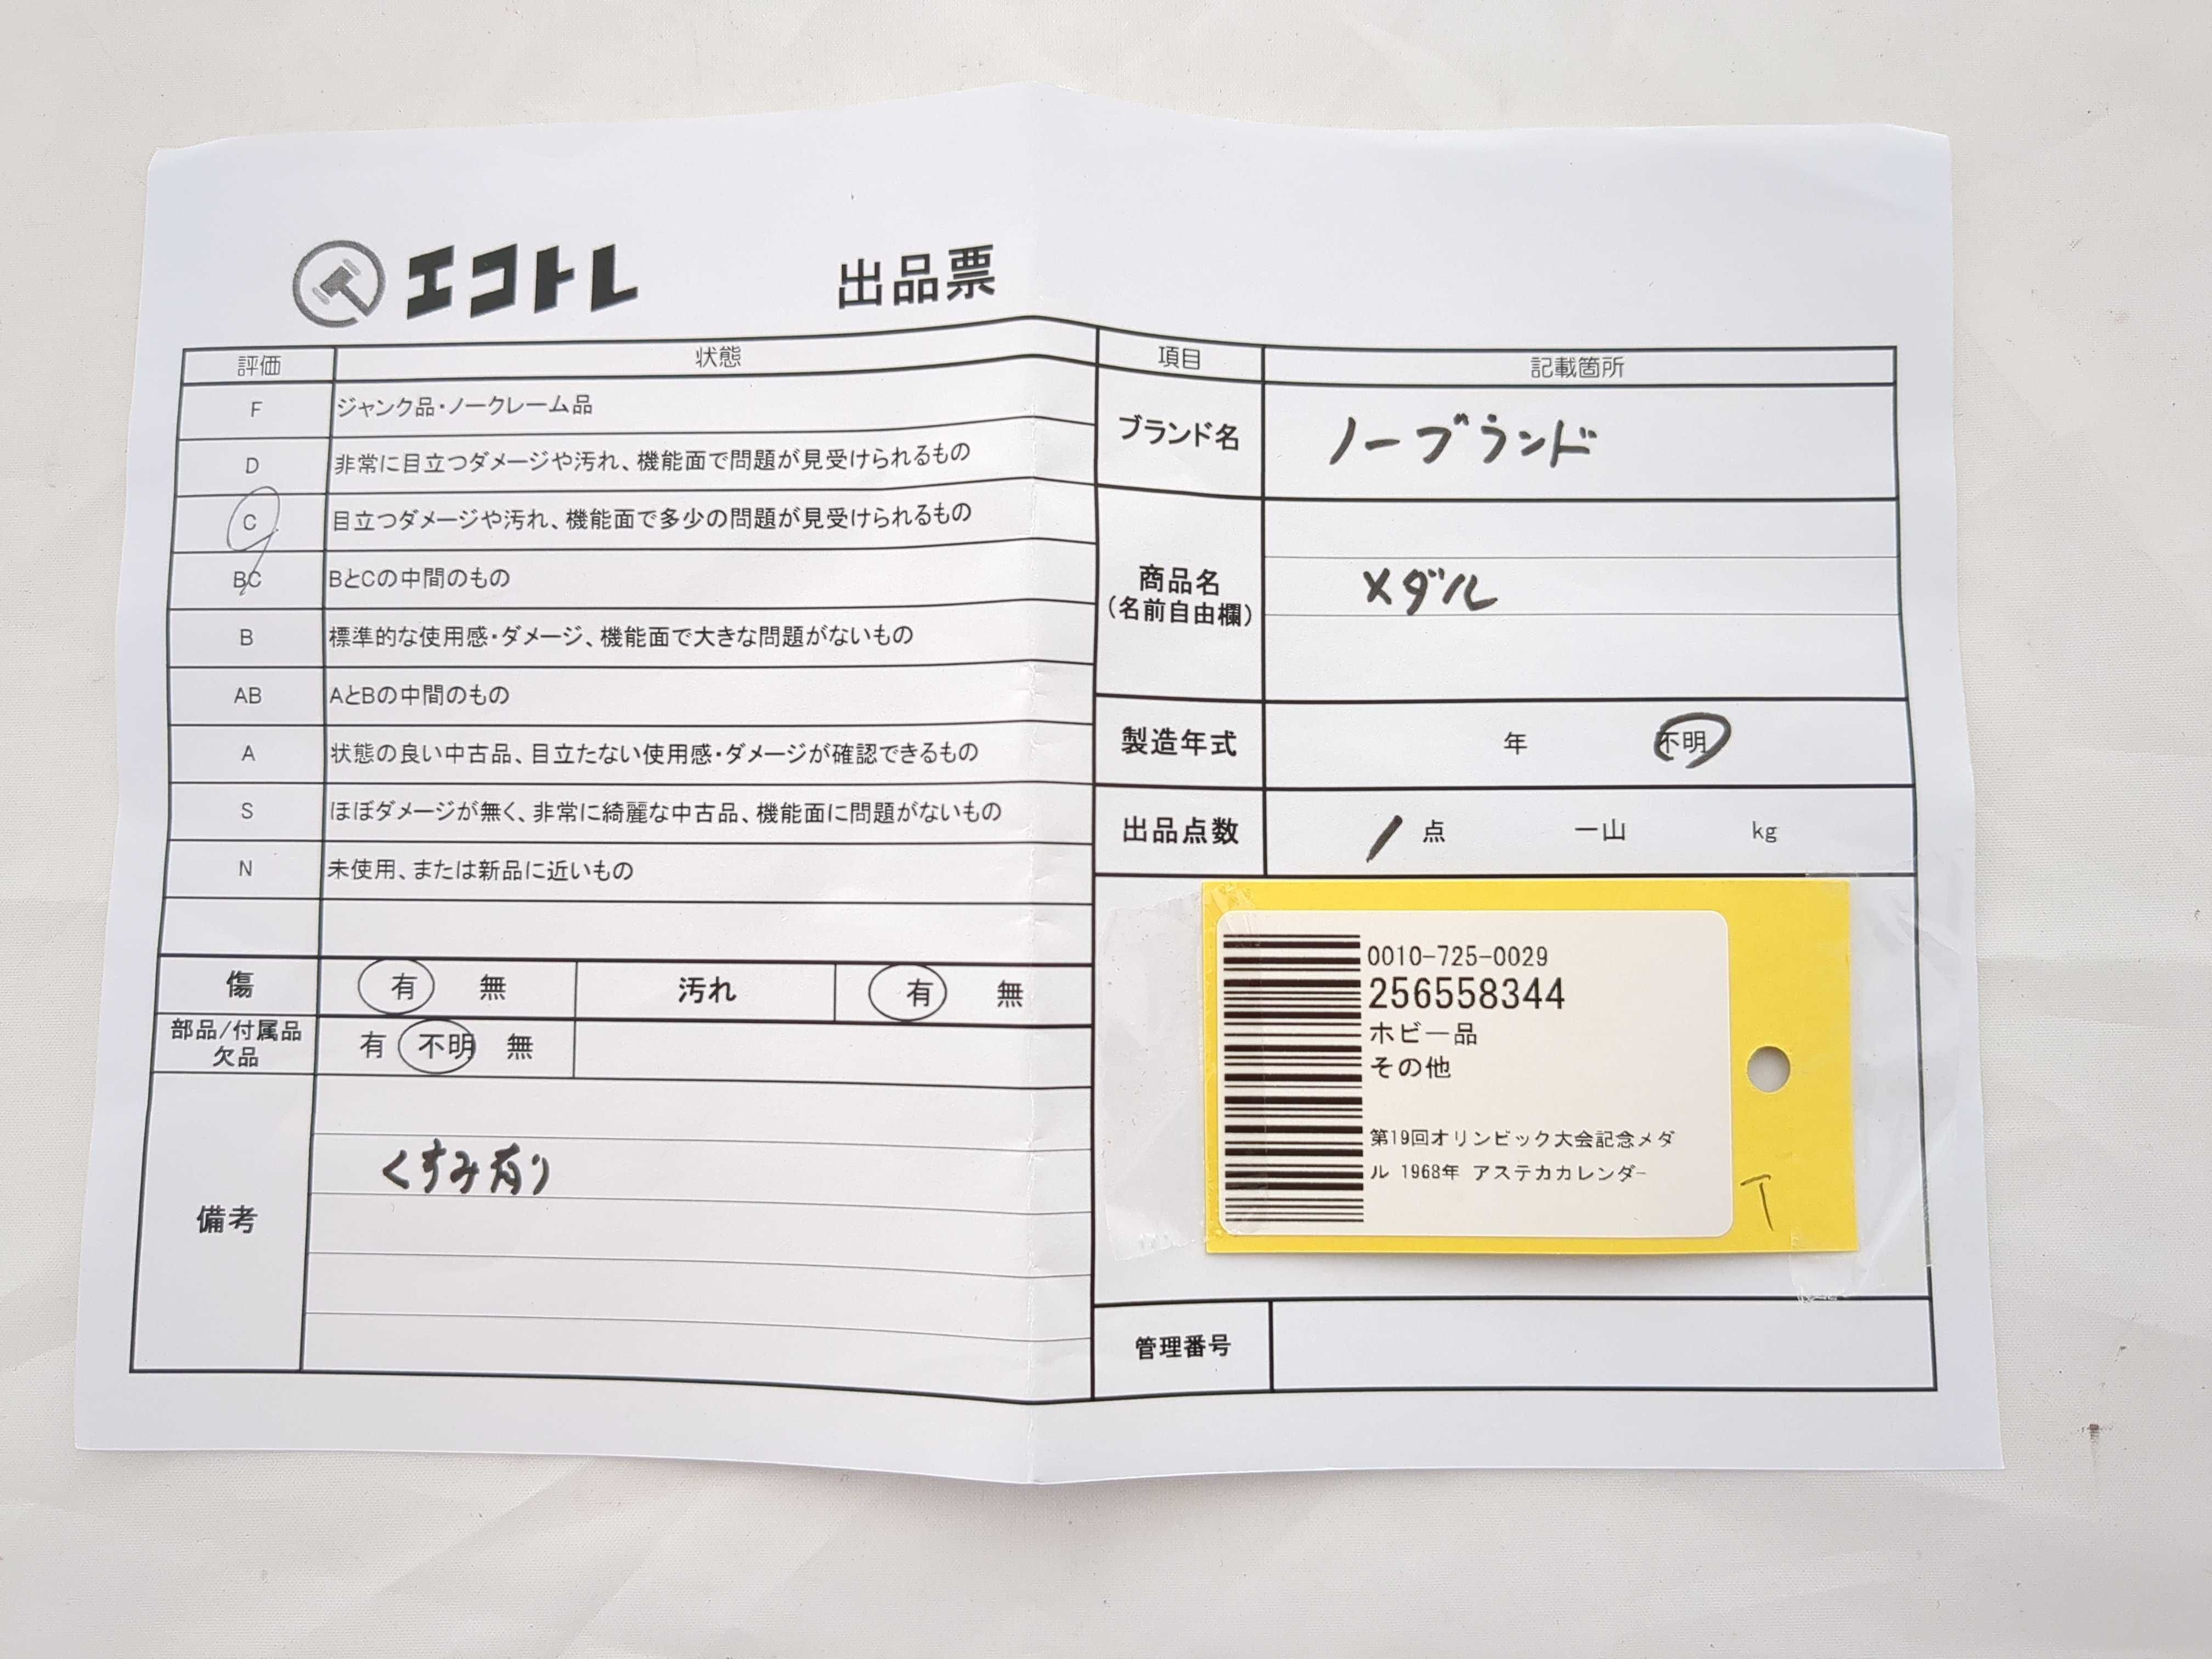 エコトレ
出品票
評価 状態
F ジャンク品・ノークレーム品
D 非常に目立つダメージや汚れ、機能面で問題が見受けられるもの
C 目立つダメージや汚れ、機能面で多少の問題が見受けられるもの
BC BとCの中間のもの
B 標準的な使用感・ダメージ、機能面で大きな問題がないもの
AB AとBの中間のもの
A 状態の良い中古品、目立たない使用感・ダメージが確認できるもの
S ほぼダメージが無く、非常に綺麗な中古品、機能面に問題がないもの
N 未使用、または新品に近いもの
傷 有 無 汚れ 有 無
部品/付属品
欠品
有 不明 無
備考
くすみ有り
項目 記載箇所
ブランド名 ノーブランド
商品名
(名前自由欄)
メダル
製造年式 年 不明
出品点数 1 点 一山 kg
0010-725-0029
256558344
ホビー品
その他
第19回オリンピック大会記念メダ
ル 1968年 アステカカレンダー
T
管理番号